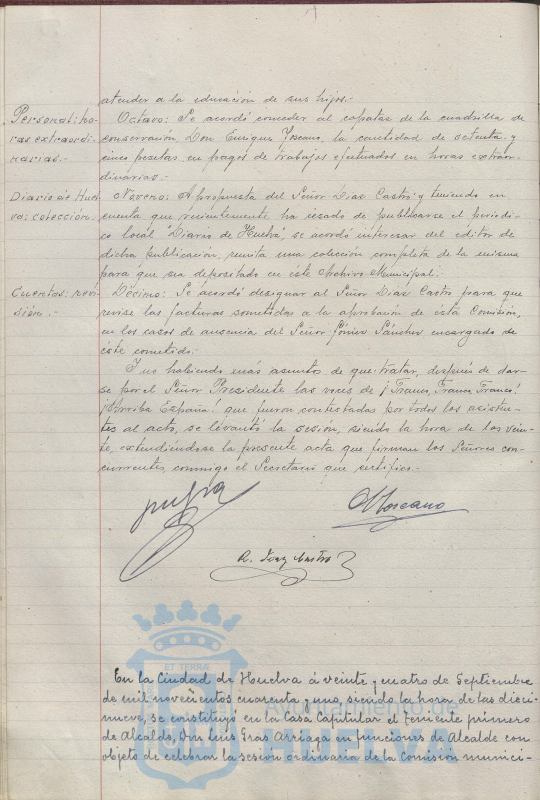 atender a la educación de sus hijos.-
Personal: ho-
ras extraordi-
narias.-
Octavo: Se acordó conceder al capataz de la cuadrilla de
conservación, Don Enrique Toscano, la cantidad de setenta y
cinco pesetas, en pago de trabajos efectuados en horas extraor-
dinarias.-
Diario de Huel-
va: colección.
Noveno: A propuesta del Señor Díaz Castro y teniendo en
cuenta que recientemente ha cesado de publicarse el periódi-
co local "Diario de Huelva", se acordó interesar del editor de
dicha publicación, remita una colección completa de la misma
para que sea depositado en este Archivo Municipal.-
Cuentas: revi-
sión.-
Décimo: Se acordó designar al Señor Díaz Castro para que
revise las facturas sometidas a la aprobación de esta Comisión,
en los casos de ausencia del Señor Gómez Sánchez encargado de
éste cometido.-
Y no habiendo más asuntos de que tratar, después de dar-
se por el Señor Presidente las voces de ¡Franco, Franco, Franco!
¡Arriba España! que fueron contestadas por todos los asisten-
tes al acto, se levantó la sesión, siendo la hora de las vein-
te, extendiéndose la presente acta que firman los Señores con-
currentes, conmigo el Secretario que certifico.-
Toscano
R. Díaz Castro
ET TERRÆ
En la Ciudad de Huelva á veinte y cuatro de Septiembre
de mil novecientos cuarenta y uno, siendo la hora de las dieci-
nueve, se constituyó en la Casa Capitular el teniente primero
Ayuntamiento de
de Alcalde, Don Luis Gras Arriaga en funciones de Alcalde con
HUELVA
objeto de celebrar la sesión ordinaria de la Comisión munici-